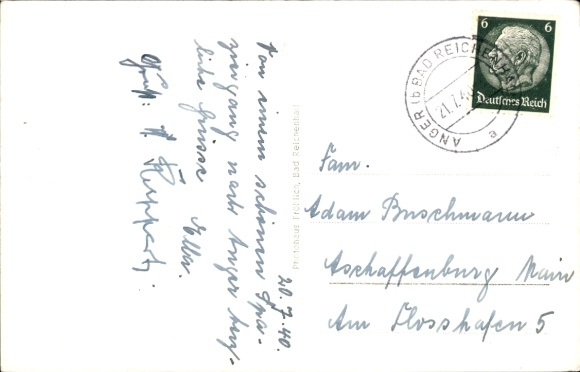 20.7.40.
Von einem schönen Spa-
ziergang nach Anger herz-
liche Grüsse
Ellen.
Gruß: A. Ruppert.
Photohaus Fröhlich, Bad Reichenhall
6 6
Deutsches Reich
ANGER (b BAD REICHENHALL)
21.7.40
a
Fam.
Adam Buschmann
Aschaffenburg Main
Am Flosshafen 5